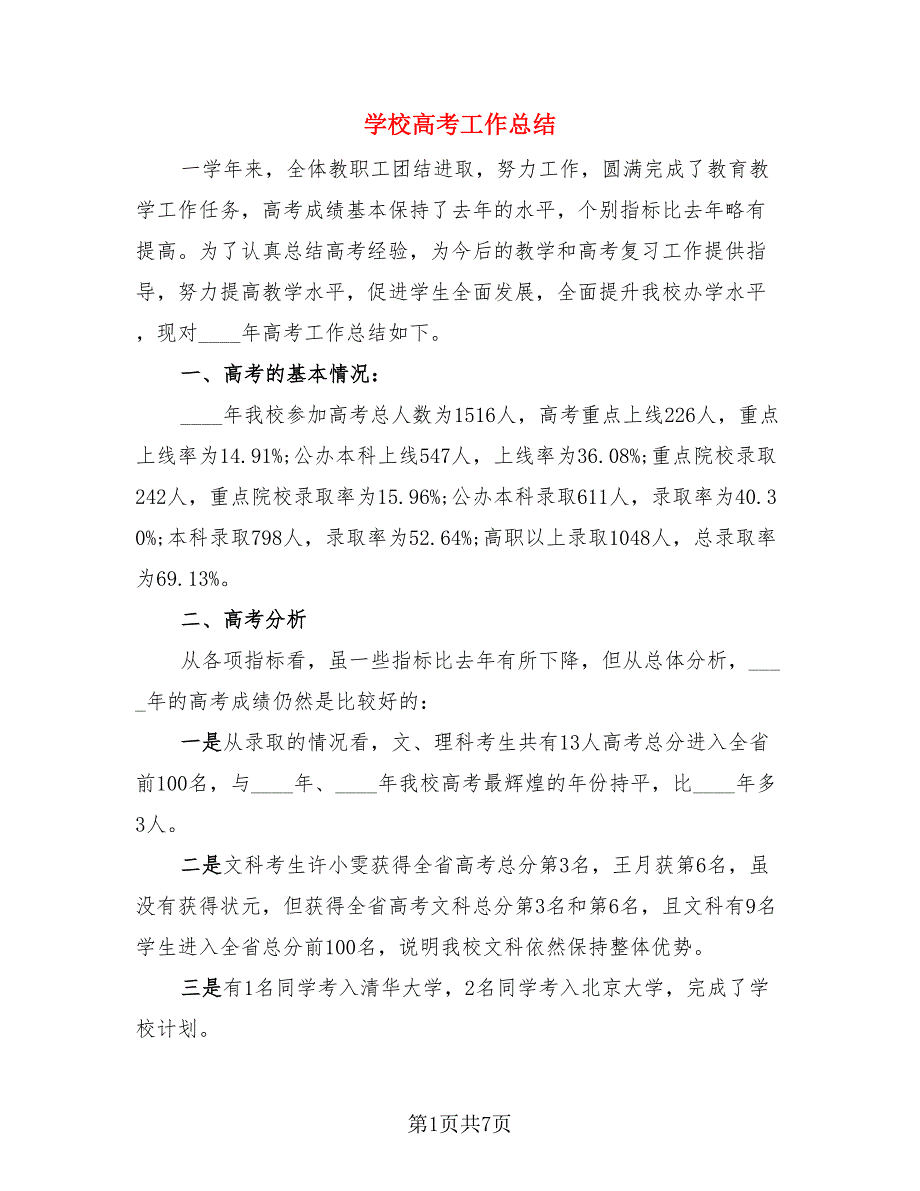 学校高考工作总结
一学年来，全体教职工团结进取，努力工作，圆满完成了教育教
学工作任务，高考成绩基本保持了去年的水平，个别指标比去年略有
提高。为了认真总结高考经验，为今后的教学和高考复习工作提供指
导，努力提高教学水平，促进学生全面发展，全面提升我校办学水平
，现对____年高考工作总结如下。
一、高考的基本情况：
____年我校参加高考总人数为1516人，高考重点上线226人，重点
上线率为14.91%;公办本科上线547人，上线率为36.08%;重点院校录取
242人，重点院校录取率为15.96%;公办本科录取611人，录取率为40.3
0%;本科录取798人，录取率为52.64%;高职以上录取1048人，总录取率
为69.13%。
二、高考分析
从各项指标看，虽一些指标比去年有所下降，但从总体分析，___
_年的高考成绩仍然是比较好的：
一是从录取的情况看，文、理科考生共有13人高考总分进入全省
前100名，与____年、____年我校高考最辉煌的年份持平，比____年多
3人。
二是文科考生许小雯获得全省高考总分第3名，王月获第6名，虽
没有获得状元，但获得全省高考文科总分第3名和第6名，且文科有9名
学生进入全省总分前100名，说明我校文科依然保持整体优势。
三是有1名同学考入清华大学，2名同学考入北京大学，完成了学
校计划。
第1页共7页